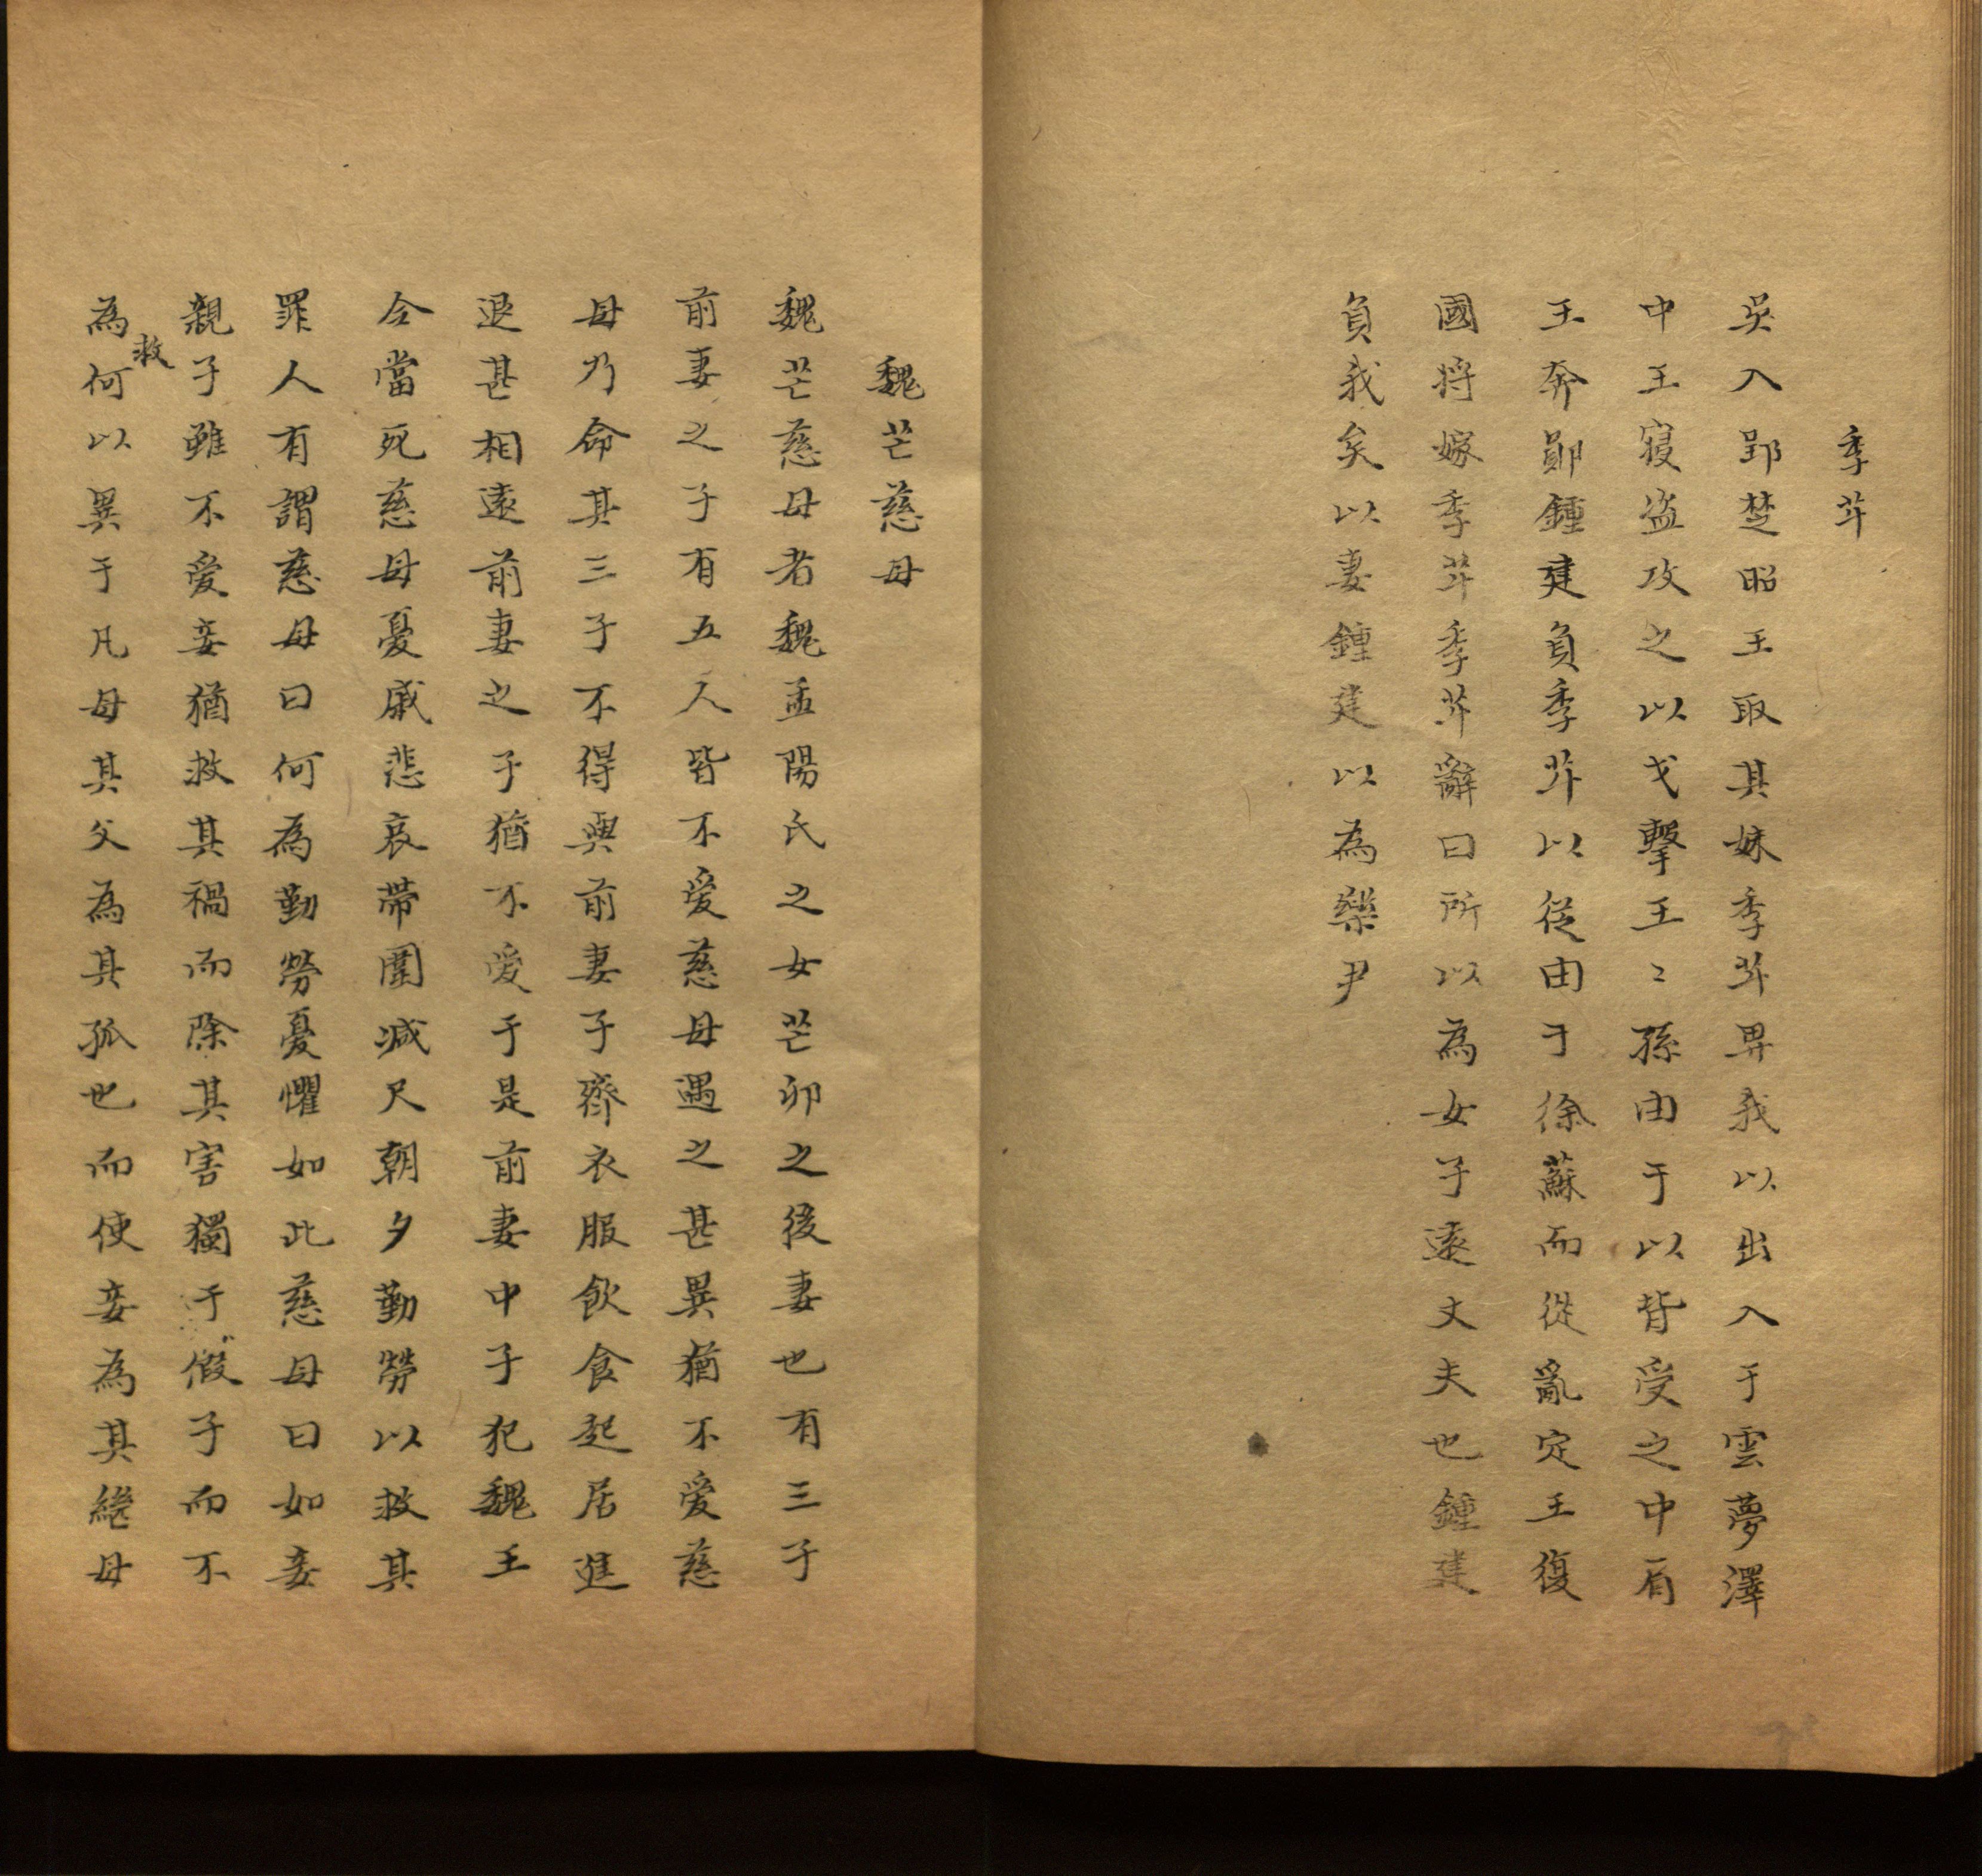 季芈
吴入郢楚昭王取其妹季芈畀我以出入于雲夢澤
中王寝盗攻之以戈擊王〻孫由于以背受之中肩
王奔鄖鍾建負季芈以從由于徐蘇而從亂定王復
國將嫁季芈季芈辭曰所以為女子遠丈夫也鍾建
負我矣以妻鍾建以為樂尹
魏芒慈母
魏芒慈母者魏孟陽氏之女芒卯之後妻也有三子
前妻之子有五人皆不爱慈母遇之甚異猶不爱慈
母乃命其三子不得與前妻子齊衣服飲食起居進
退甚相遠前妻之子猶不爱于是前妻中子犯魏王
令當死慈母憂戚悲哀帶圍减尺朝夕勤勞以救其
罪人有謂慈母曰何為勤勞憂懼如此慈母曰如妾
親子雖不爱妾猶救其禍而除其害獨于假子而不
為救何以異于凡母其父為其孤也而使妾為其繼母